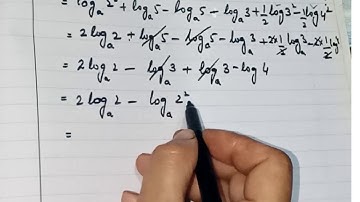 = log_a 2² + log_a 5 - log_a 5 - log_a 3 + 1/2 log 3² - 1/2 log 4²
= 2 log_a 2 + log_a 5 - log_a 5 - log_a 3 + 2×1/2 log_a 3 - 2×1/2 log
= 2 log_a 2 - log_a 3 + log_a 3 - log 4
= 2 log_a 2 - log_a 2²
=